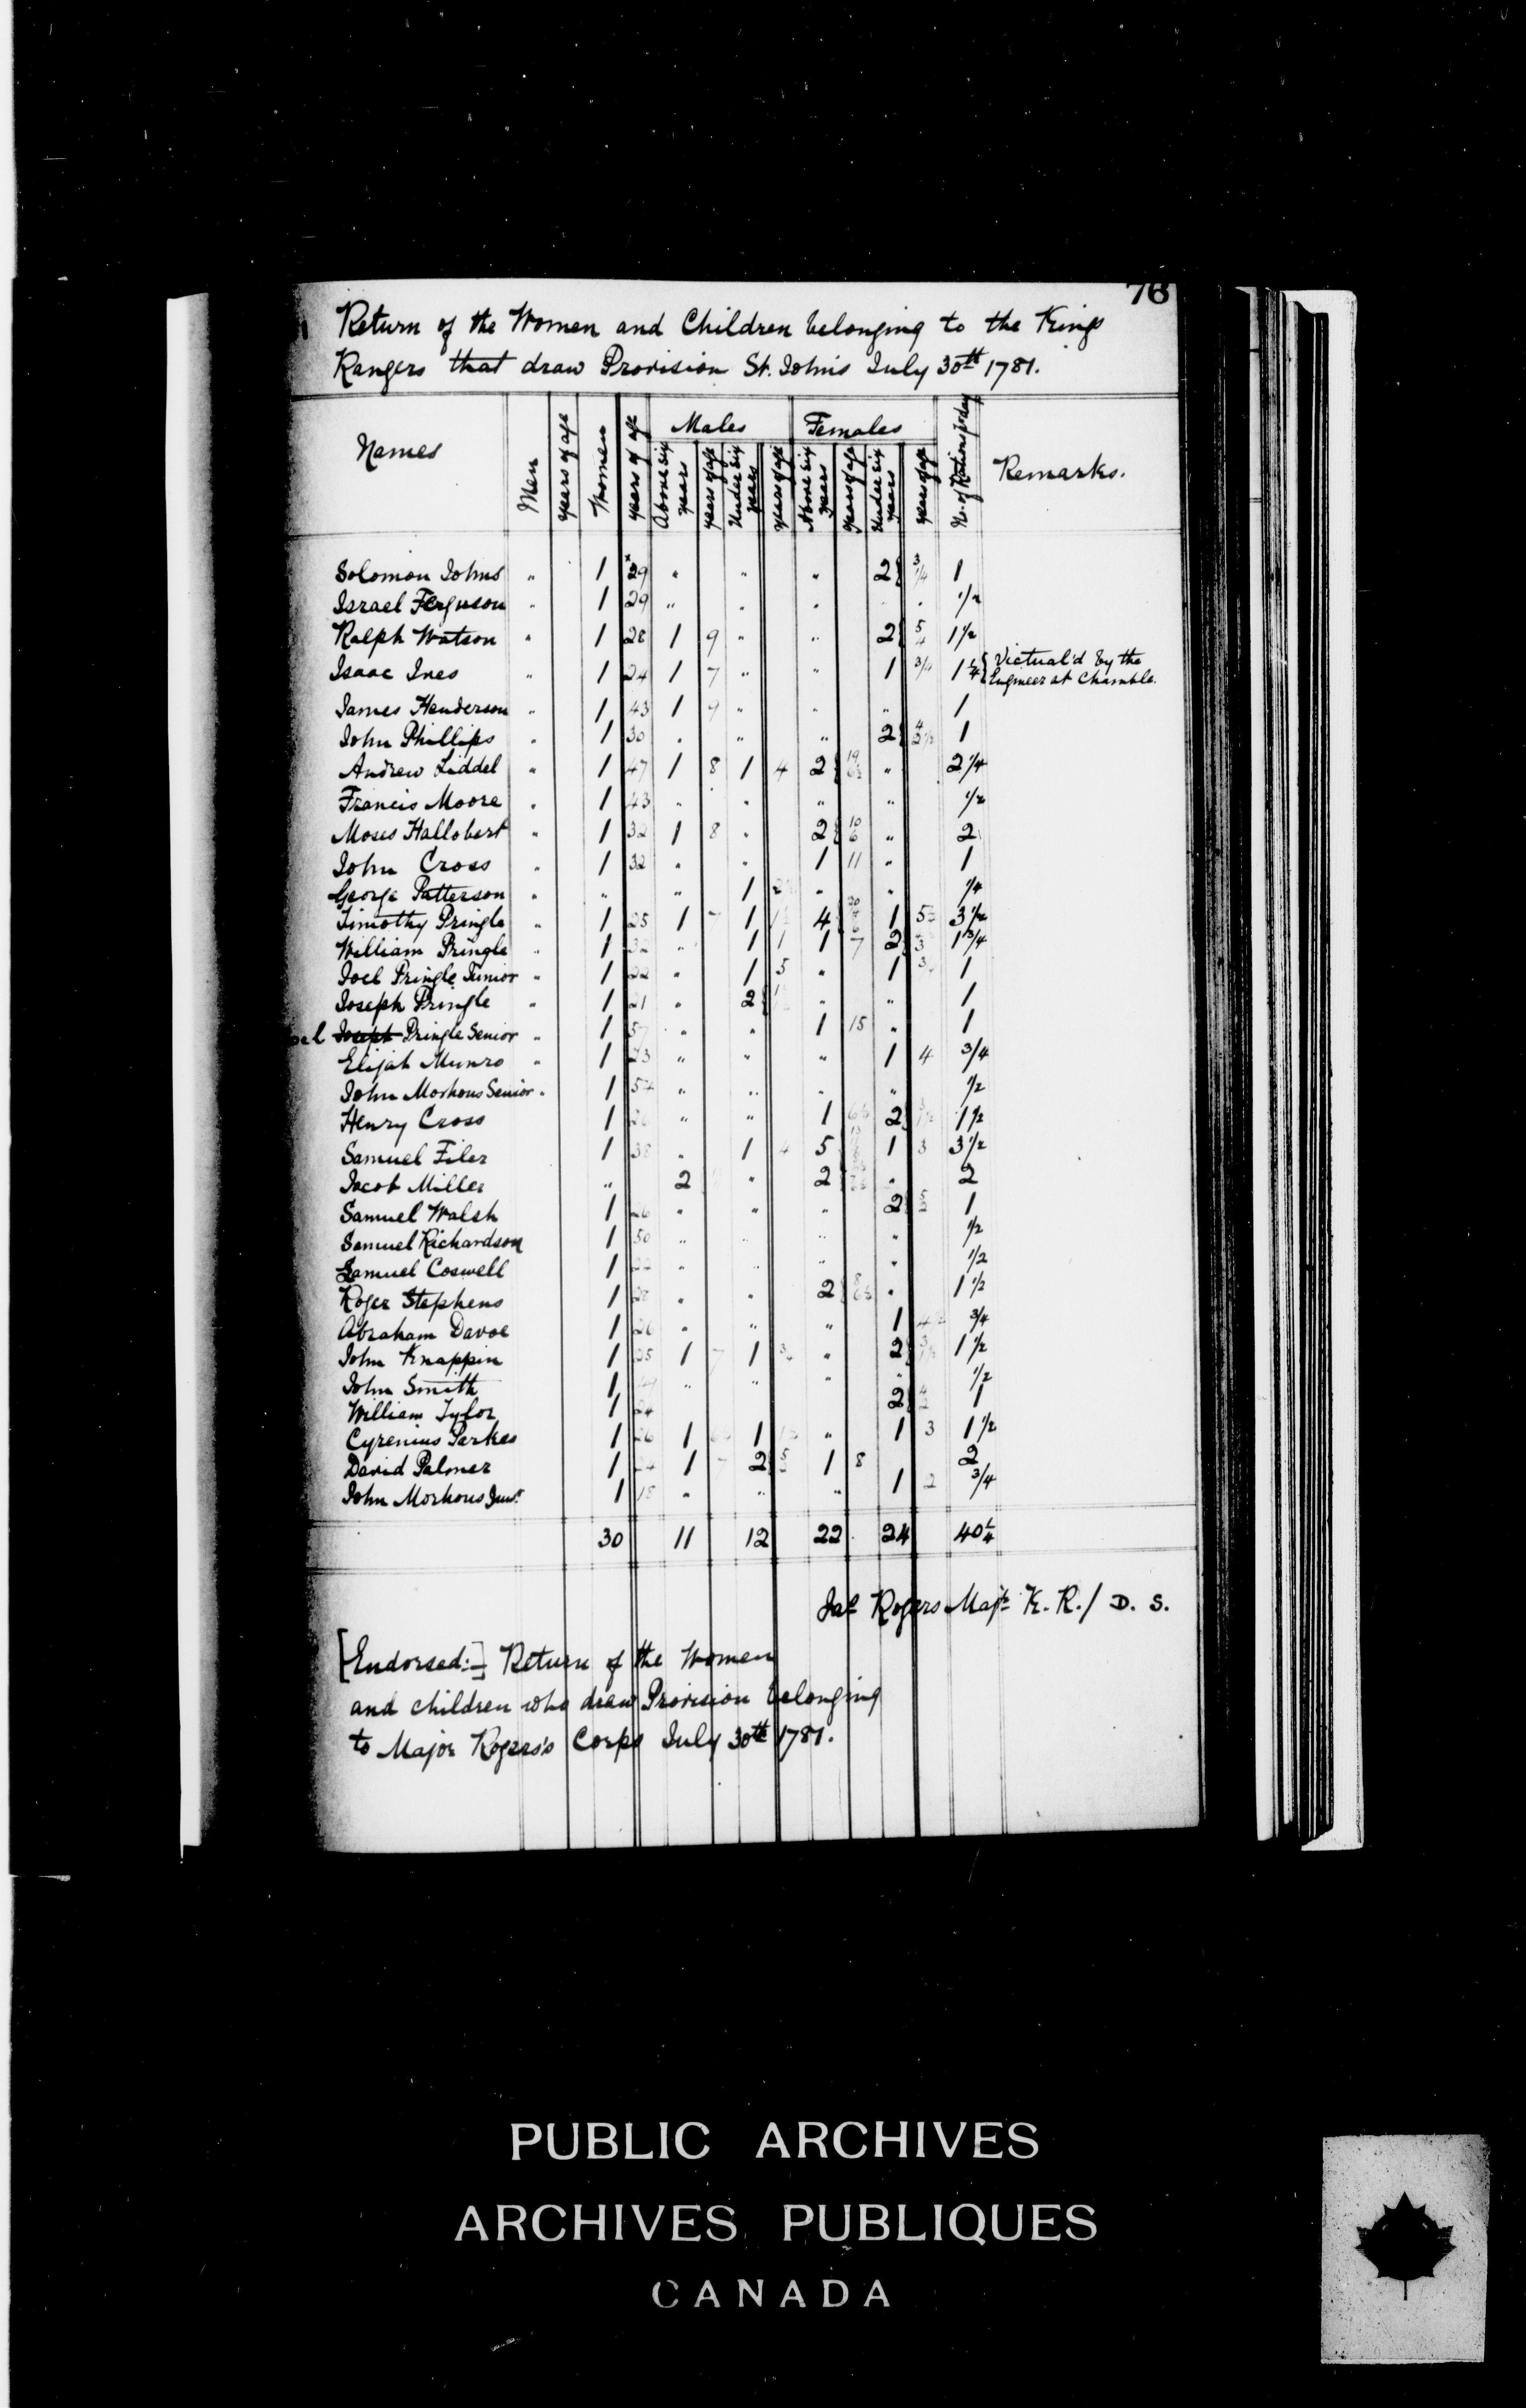 76
Return of the Women and Children belonging to the Kings
Rangers that draw Provision St. Johns July 30th 1781.
Names Men years of age Women years of age Males Females No. of Rations p day Remarks.
Above six years years of age Under six years years of age Above six years years of age Under six years years of age
Solomon Johns " 1 29 " " " 2 3/4 1
Israel Ferguson " 1 29 " " " " 1/2
Ralph Watson " 1 28 1 9 " " 2 5 4 1 1/2
Isaac Ines " 1 24 1 7 " " 1 3/4 1 1/4 Victual'd by the
Engineer at Chamble.
James Henderson " 1 43 1 9 " " " 1
John Phillips " 1 30 " " " 2 4 2 1/2 1
Andrew Liddel " 1 47 1 8 1 4 2 " 2 1/4
Francis Moore " 1 43 " " " " 1/2
Moses Hallobert " 1 32 1 8 " 2 10 6 " 2
John Cross " 1 32 " " 1 11 " 1
George Patterson " " " 1 " " 1/4
Timothy Pringle " 1 25 1 7 1 4 1 5 3 1/2
William Pringle " 1 32 " 1 1 1 7 2 3 1 3/4
Joel Pringle Junior " 1 22 " 1 5 " 1 1
Joseph Pringle " 1 21 " 2 " " 1
Joseph Pringle Senior " 1 57 " " 1 15 " 1
Elijah Munro " 1 23 " " " 1 4 3/4
John Morhous Senior " 1 54 " " " " 1/2
Henry Cross 1 26 " " 1 2 1 1/2
Samuel Filer 1 38 " 1 4 5 1 3 3 1/2
Jacob Miller " 2 " 2 " 2
Samuel Walsh 1 26 " " " 2 1
Samuel Richardson 1 50 " " " " 1/2
Samuel Coswell 1 22 " " " " 1/2
Roger Stephens 1 28 " " 2 " 1 1/2
Abraham Davoe 1 26 " " " 1 3/4
John Knappin 1 25 1 7 1 3/4 " 2 1 1/2
John Smith 1 " " " " 1/2
William Tylor 1 24 2 4 2 1
Cyrenius Parkes 1 26 1 1 " 1 3 1 1/2
David Palmer 1 24 1 7 2 1 8 2
John Morhous Junr. 1 18 " " " 1 2 3/4
30 11 12 22 24 40 1/4
Jas Rogers Majr K. R./ D. S.
[Endorsed:-] Return of the Women
and children who draw Provision belonging
to Major Rogers's Corps July 30th 1781.
PUBLIC ARCHIVES
ARCHIVES PUBLIQUES
CANADA